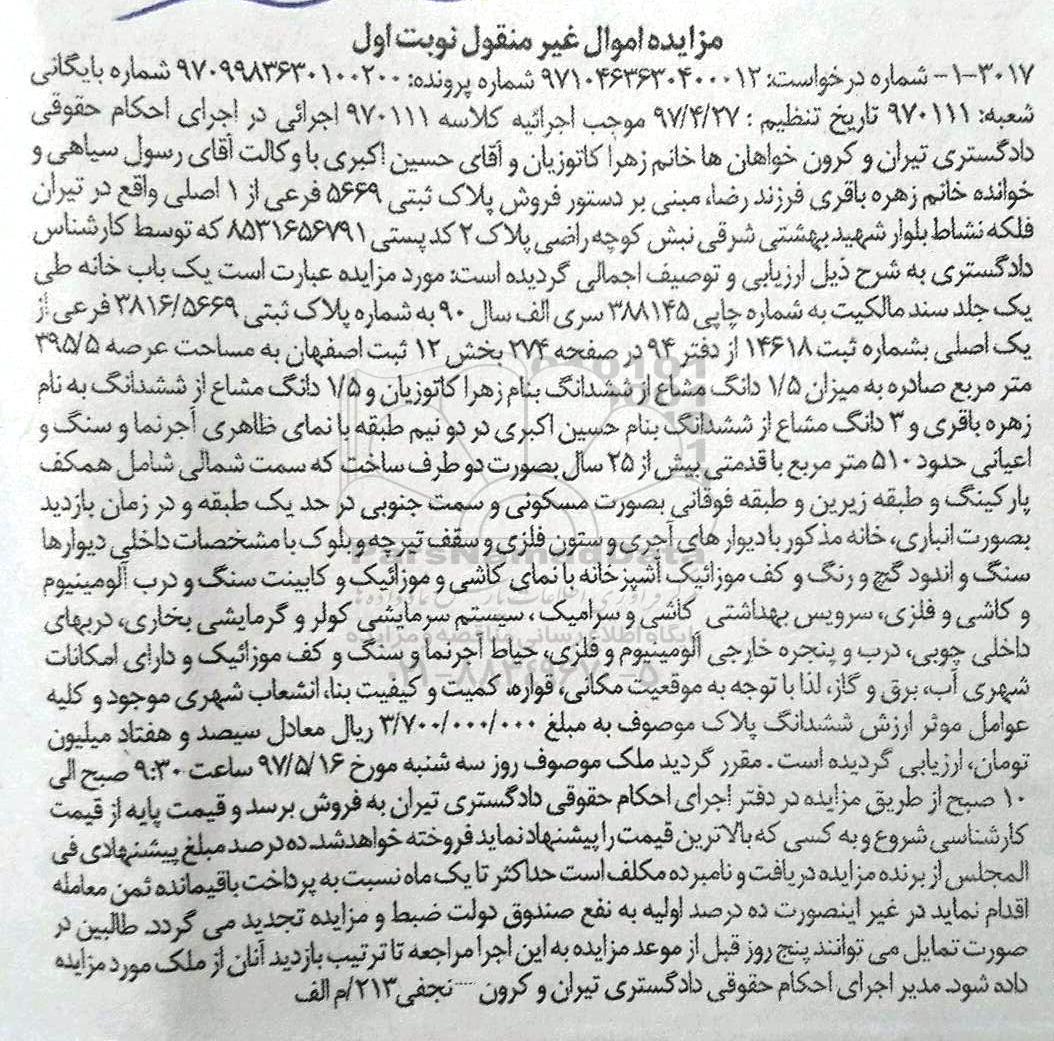 مزایده اموال غیر منقول نوبت اول
۱-۳۰۱۷- شماره درخواست: ۹۷۱۰۴۶۳۶۳۰۴۰۰۰۱۲ شماره پرونده: ۹۷۰۹۹۸۳۶۳۰۱۰۰۲۰۰ شماره بایگانی
شعبه: ۹۷۰۱۱۱ تاریخ تنظیم : ۹۷/۴/۲۷ موجب اجرائیه کلاسه ۹۷۰۱۱۱ اجرائی در اجرای احکام حقوقی
دادگستری تیران و کرون خواهان ها خانم زهرا کاتوزیان و آقای حسین اکبری با وکالت آقای رسول سیاهی و
خوانده خانم زهره باقری فرزند رضا، مبنی بر دستور فروش پلاک ثبتی ۵۶۶۹ فرعی از ۱ اصلی واقع در تیران
فلکه نشاط بلوار شهید بهشتی شرقی نبش کوچه راضی پلاک ۲ کد پستی ۸۵۳۱۶۵۶۷۹۱ که توسط کارشناس
دادگستری به شرح ذیل ارزیابی و توصیف اجمالی گردیده است: مورد مزایده عبارت است یک باب خانه طی
یک جلد سند مالکیت به شماره چاپی ۳۸۸۱۴۵ سری الف سال ۹۰ به شماره پلاک ثبتی ۳۸۱۶/۵۶۶۹ فرعی از
یک اصلی بشماره ثبت ۱۴۶۱۸ از دفتر ۹۴ در صفحه ۲۷۴ بخش ۱۲ ثبت اصفهان به مساحت عرصه ۳۹۵/۵
متر مربع صادره به میزان ۱/۵ دانگ مشاع از ششدانگ بنام زهرا کاتوزیان و ۱/۵ دانگ مشاع از ششدانگ به نام
زهره باقری و ۳ دانگ مشاع از ششدانگ بنام حسین اکبری در دو نیم طبقه با نمای ظاهری آجر نما و سنگ و
اعیانی حدود ۵۱۰ متر مربع با قدمتی بیش از ۲۵ سال بصورت دو طرف ساخت که سمت شمالی شامل همکف
پارکینگ و طبقه زیرین و طبقه فوقانی بصورت مسکونی و سمت جنوبی در حد یک طبقه و در زمان بازدید
بصورت انباری، خانه مذکور با دیوار های آجری و ستون فلزی و سقف تیرچه و بلوک با مشخصات داخلی دیوارها
سنگ و اندود گچ و رنگ و کف موزائیک آشپزخانه با نمای کاشی و موزائیک و کابینت سنگ و درب آلومینیوم
و کاشی و فلزی، سرویس بهداشتی کاشی و سرامیک ، سیستم سرمایشی کولر و گرمایشی بخاری، دربهای
داخلی چوبی، درب و پنجره خارجی آلومینیوم و فلزی، حیاط آجرنما و سنگ و کف موزائیک و دارای امکانات
شهری آب، برق و گاز، لذا با توجه به موقعیت مکانی، قواره، کمیت و کیفیت بنا، انشعاب شهری موجود و کلیه
عوامل موثر ارزش ششدانگ پلاک موصوف به مبلغ ۳/۷۰۰/۰۰۰/۰۰۰ ریال معادل سیصد و هفتاد میلیون
تومان، ارزیابی گردیده است . مقرر گردید ملک موصوف روز سه شنبه مورخ ۹۷/۵/۱۶ ساعت ۹:۳۰ صبح الی
۱۰ صبح از طریق مزایده در دفتر اجرای احکام حقوقی دادگستری تیران به فروش برسد و قیمت پایه از قیمت
کارشناسی شروع و به کسی که بالاترین قیمت را پیشنهاد نماید فروخته خواهدشد. ده درصد مبلغ پیشنهادی فی
المجلس از برنده مزایده دریافت و نامبرده مکلف است حداکثر تا یک ماه نسبت به پرداخت باقیمانده ثمن معامله
اقدام نماید در غیر اینصورت ده درصد اولیه به نفع صندوق دولت ضبط و مزایده تجدید می گردد. طالبین در
صورت تمایل می توانند پنج روز قبل از موعد مزایده به این اجرا مراجعه تا ترتیب بازدید آنان از ملک مورد مزایده
داده شود. مدیر اجرای احکام حقوقی دادگستری تیران و کرون ---- نجفی ۲۱۳/م الف
ParsNamadData
پایگاه اطلاع رسانی مناقصه و مزایده